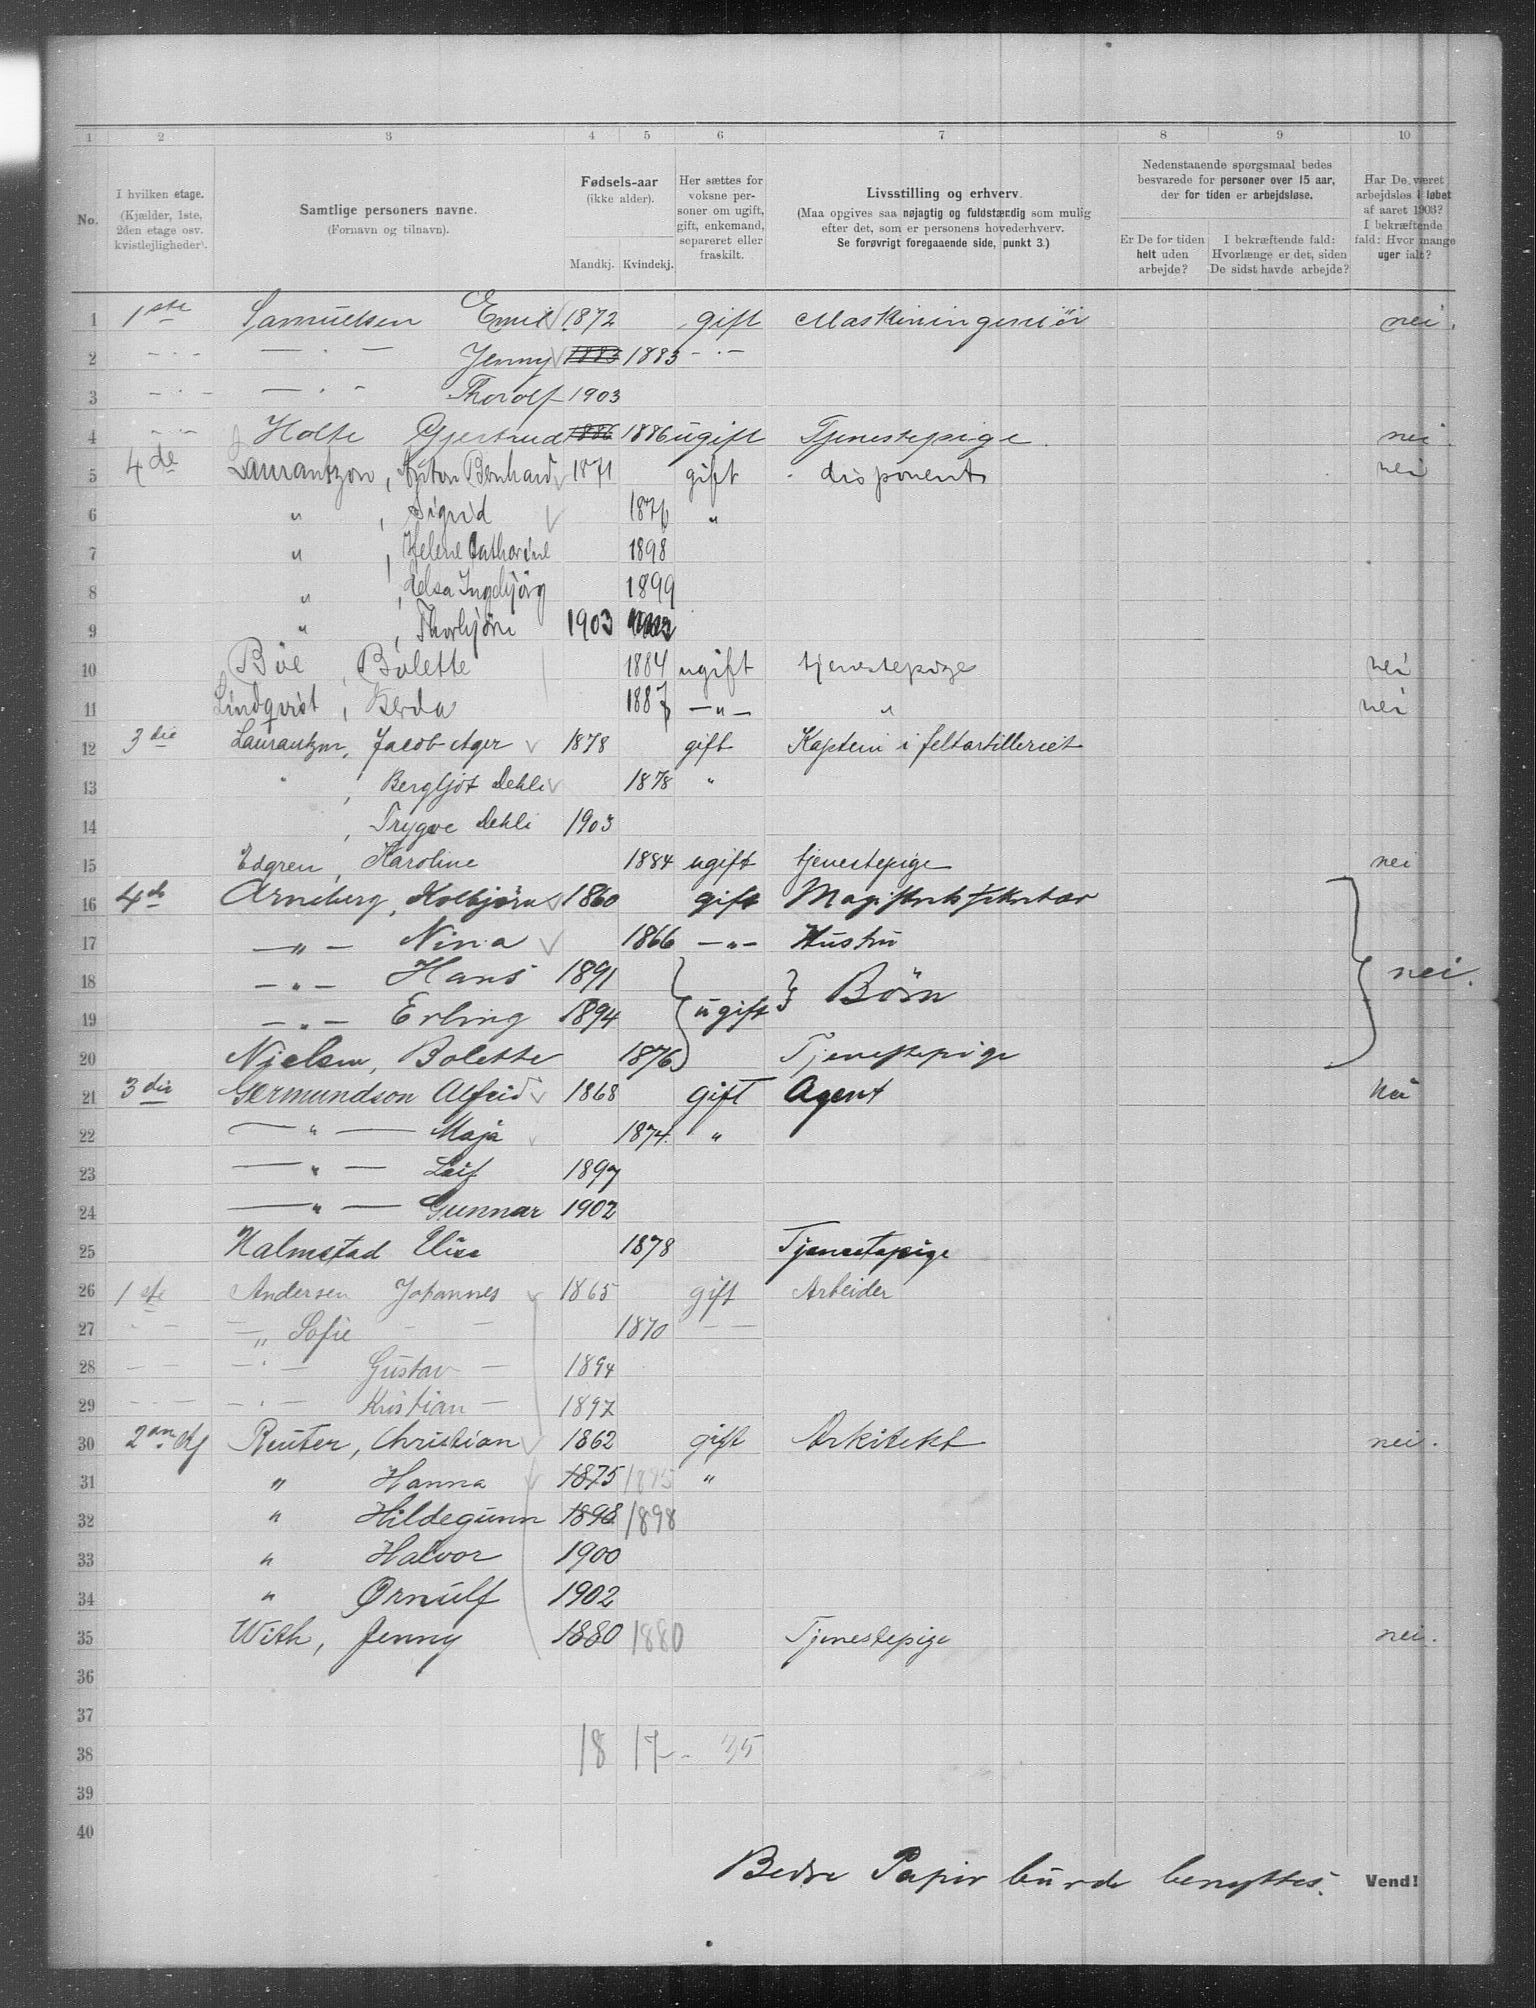 1 2 3 4 5 6 7 8 9 10
No. I hvilken etage. (Kjælder, 1ste, 2den etage osv. kvistlejligheder). Samtlige personers navne. (Fornavn og tilnavn). Fødsels-aar (ikke alder). Mandkj. Kvindekj. Her sættes for voksne personer om ugift, gift, enkemand, separeret eller fraskilt. Livsstilling og erhverv. (Maa opgives saa nøjagtig og fuldstændig som mulig efter det, som er personens hovederhverv. Se forøvrigt foregaaende side, punkt 3.) Nedenstaaende spørgsmaal bedes besvarede for personer over 15 aar, der for tiden er arbejdsløse. Er De for tiden helt uden arbejde? I bekræftende fald: Hvorlænge er det, siden De sidst havde arbejde? Har De været arbejdsløs i løbet af aaret 1903? I bekræftende fald: Hvor mange uger ialt?
1 1ste Samuelsen Emil 1872 gift Maskiningeniör nei.
2 - · - — · — Jenny 1883 1883 - · -
3 - · - — · — Thorolf 1903
4 - · - Holte Gjertrud 1886 1886 ugift Tjenestepige. nei.
5 4de Laurantzon, Anton Bernhard 1871 gift disponent nei
6 " , Sigrid 1876 "
7 " , Helene Catharine 1898
8 " , Elsa Ingebjörg 1899
9 " , Thorbjörn 1903
10 Böe, Bolette 1884 ugift tjenestepige nei
11 Lindqvist, Berda 1887 — " — " nei
12 3die Laurantzon, Jacob Ager 1878 gift Kaptein i feltartilleriet
13 " , Bergljot Dehli 1878 "
14 , Trygve Dehli 1903
15 Edgren, Karoline 1884 ugift tjenestepige nei
16 4de Arneberg, Kolbjörn 1860 gift Magistratssekretær
17 — " — Nina 1866 — " — Hustru
18 — " — Hans 1891 ugift Börn nei.
19 — " — Erling 1894
20 Nielsen, Bolette 1876 Tjenestepige
21 3die Germundson Alfrid 1868 gift Agent nei
22 — " — Maja 1874. "
23 — " — Leif 1897
24 — " — Gunnar 1902
25 Halmstad Elise 1878 Tjenestepige
26 1ste Andersen Johannes 1865 gift Arbeider
27 - - - — " Sofie - - 1870 — —
28 — — — · — Gustav — 1894
29 - · - · - — · — Kristian — 1897
30 2den Reuter, Christian 1862 gift Arkitekt nei.
31 " Hanna 1875 1875 "
32 " Hildegunn 1898 1898
33 " Halvor 1900
34 " Ørnulf 1902
35 With, Jenny 1880 1880 Tjenestepige nei.
36
37
38 18 17 - 35
39
40
Bedre Papir burde benyttes. Vend!